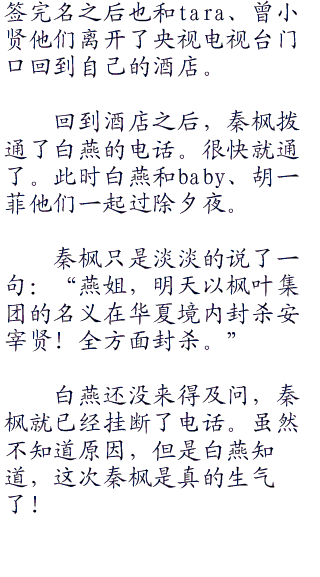 签完名之后也和tara、曾小
贤他们离开了央视电视台门
口回到自己的酒店。
回到酒店之后，秦枫拨
通了白燕的电话。很快就通
了。此时白燕和baby、胡一
菲他们一起过除夕夜。
秦枫只是淡淡的说了一
句：“燕姐，明天以枫叶集
团的名义在华夏境内封杀安
宰贤！全方面封杀。”
白燕还没来得及问，秦
枫就已经挂断了电话。虽然
不知道原因，但是白燕知
道，这次秦枫是真的生气
了！